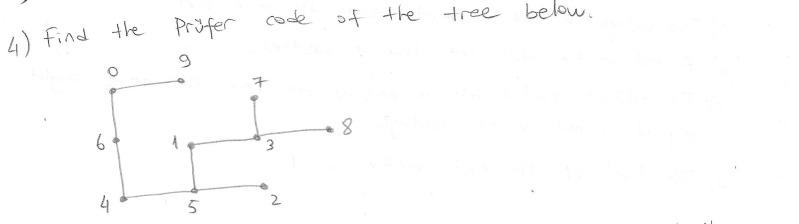 4) Find the Prüfer code of the tree below.
0 9
7
8
6 1 3
4 5 2